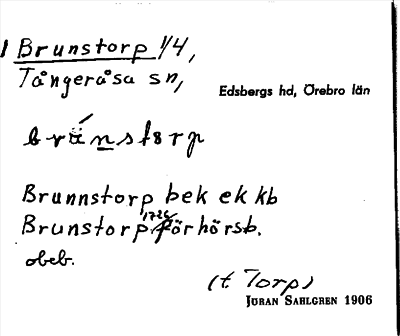 1 Brunstorp 1/4,
Tångeråsa sn,
Edsbergs hd, Örebro län
Brunnstorp bek ek kb
Brunstorp 1726 förhörsb.
obeb.
(t. Torp)
Jöran Sahlgren 1906